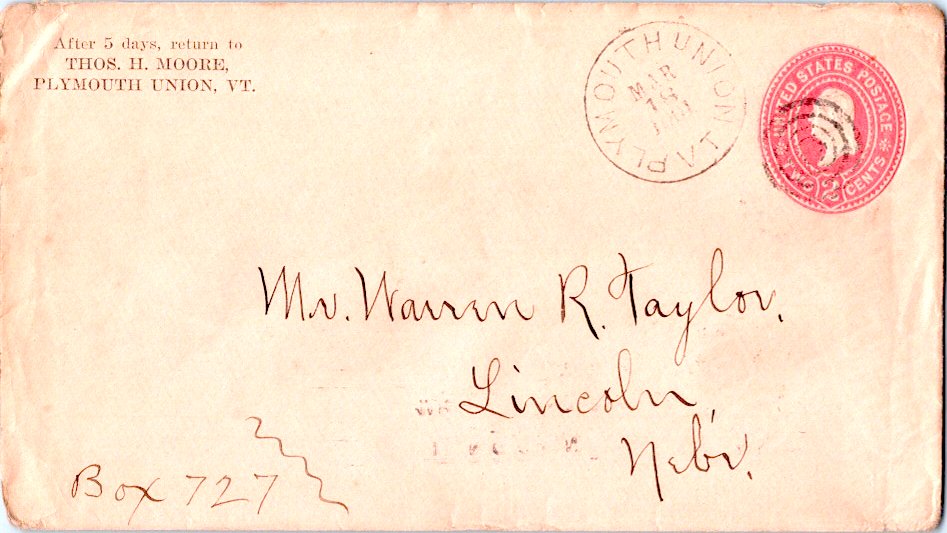 After 5 days, return to
THOS. H. MOORE,
PLYMOUTH UNION, VT.
PLYMOUTH UNION VT
MAR
UNITED STATES POSTAGE
TWO 2 CENTS
Mr. Warren R. Taylor,
Lincoln,
Nebr.
Box 727